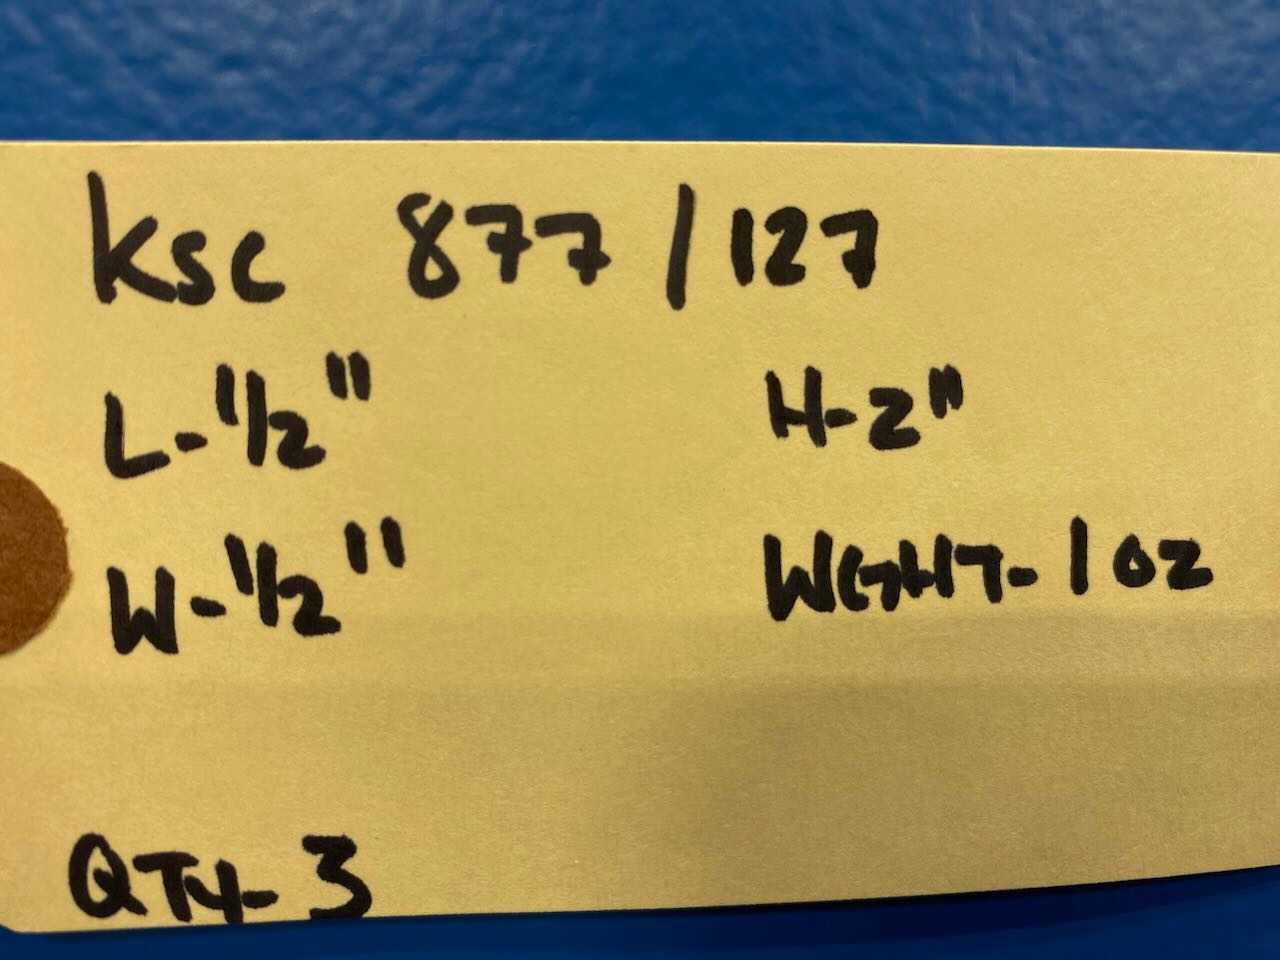 KSC 877/127
L-1/2" H-2"
W-1/2" WGHT-1 oz
QTY-3